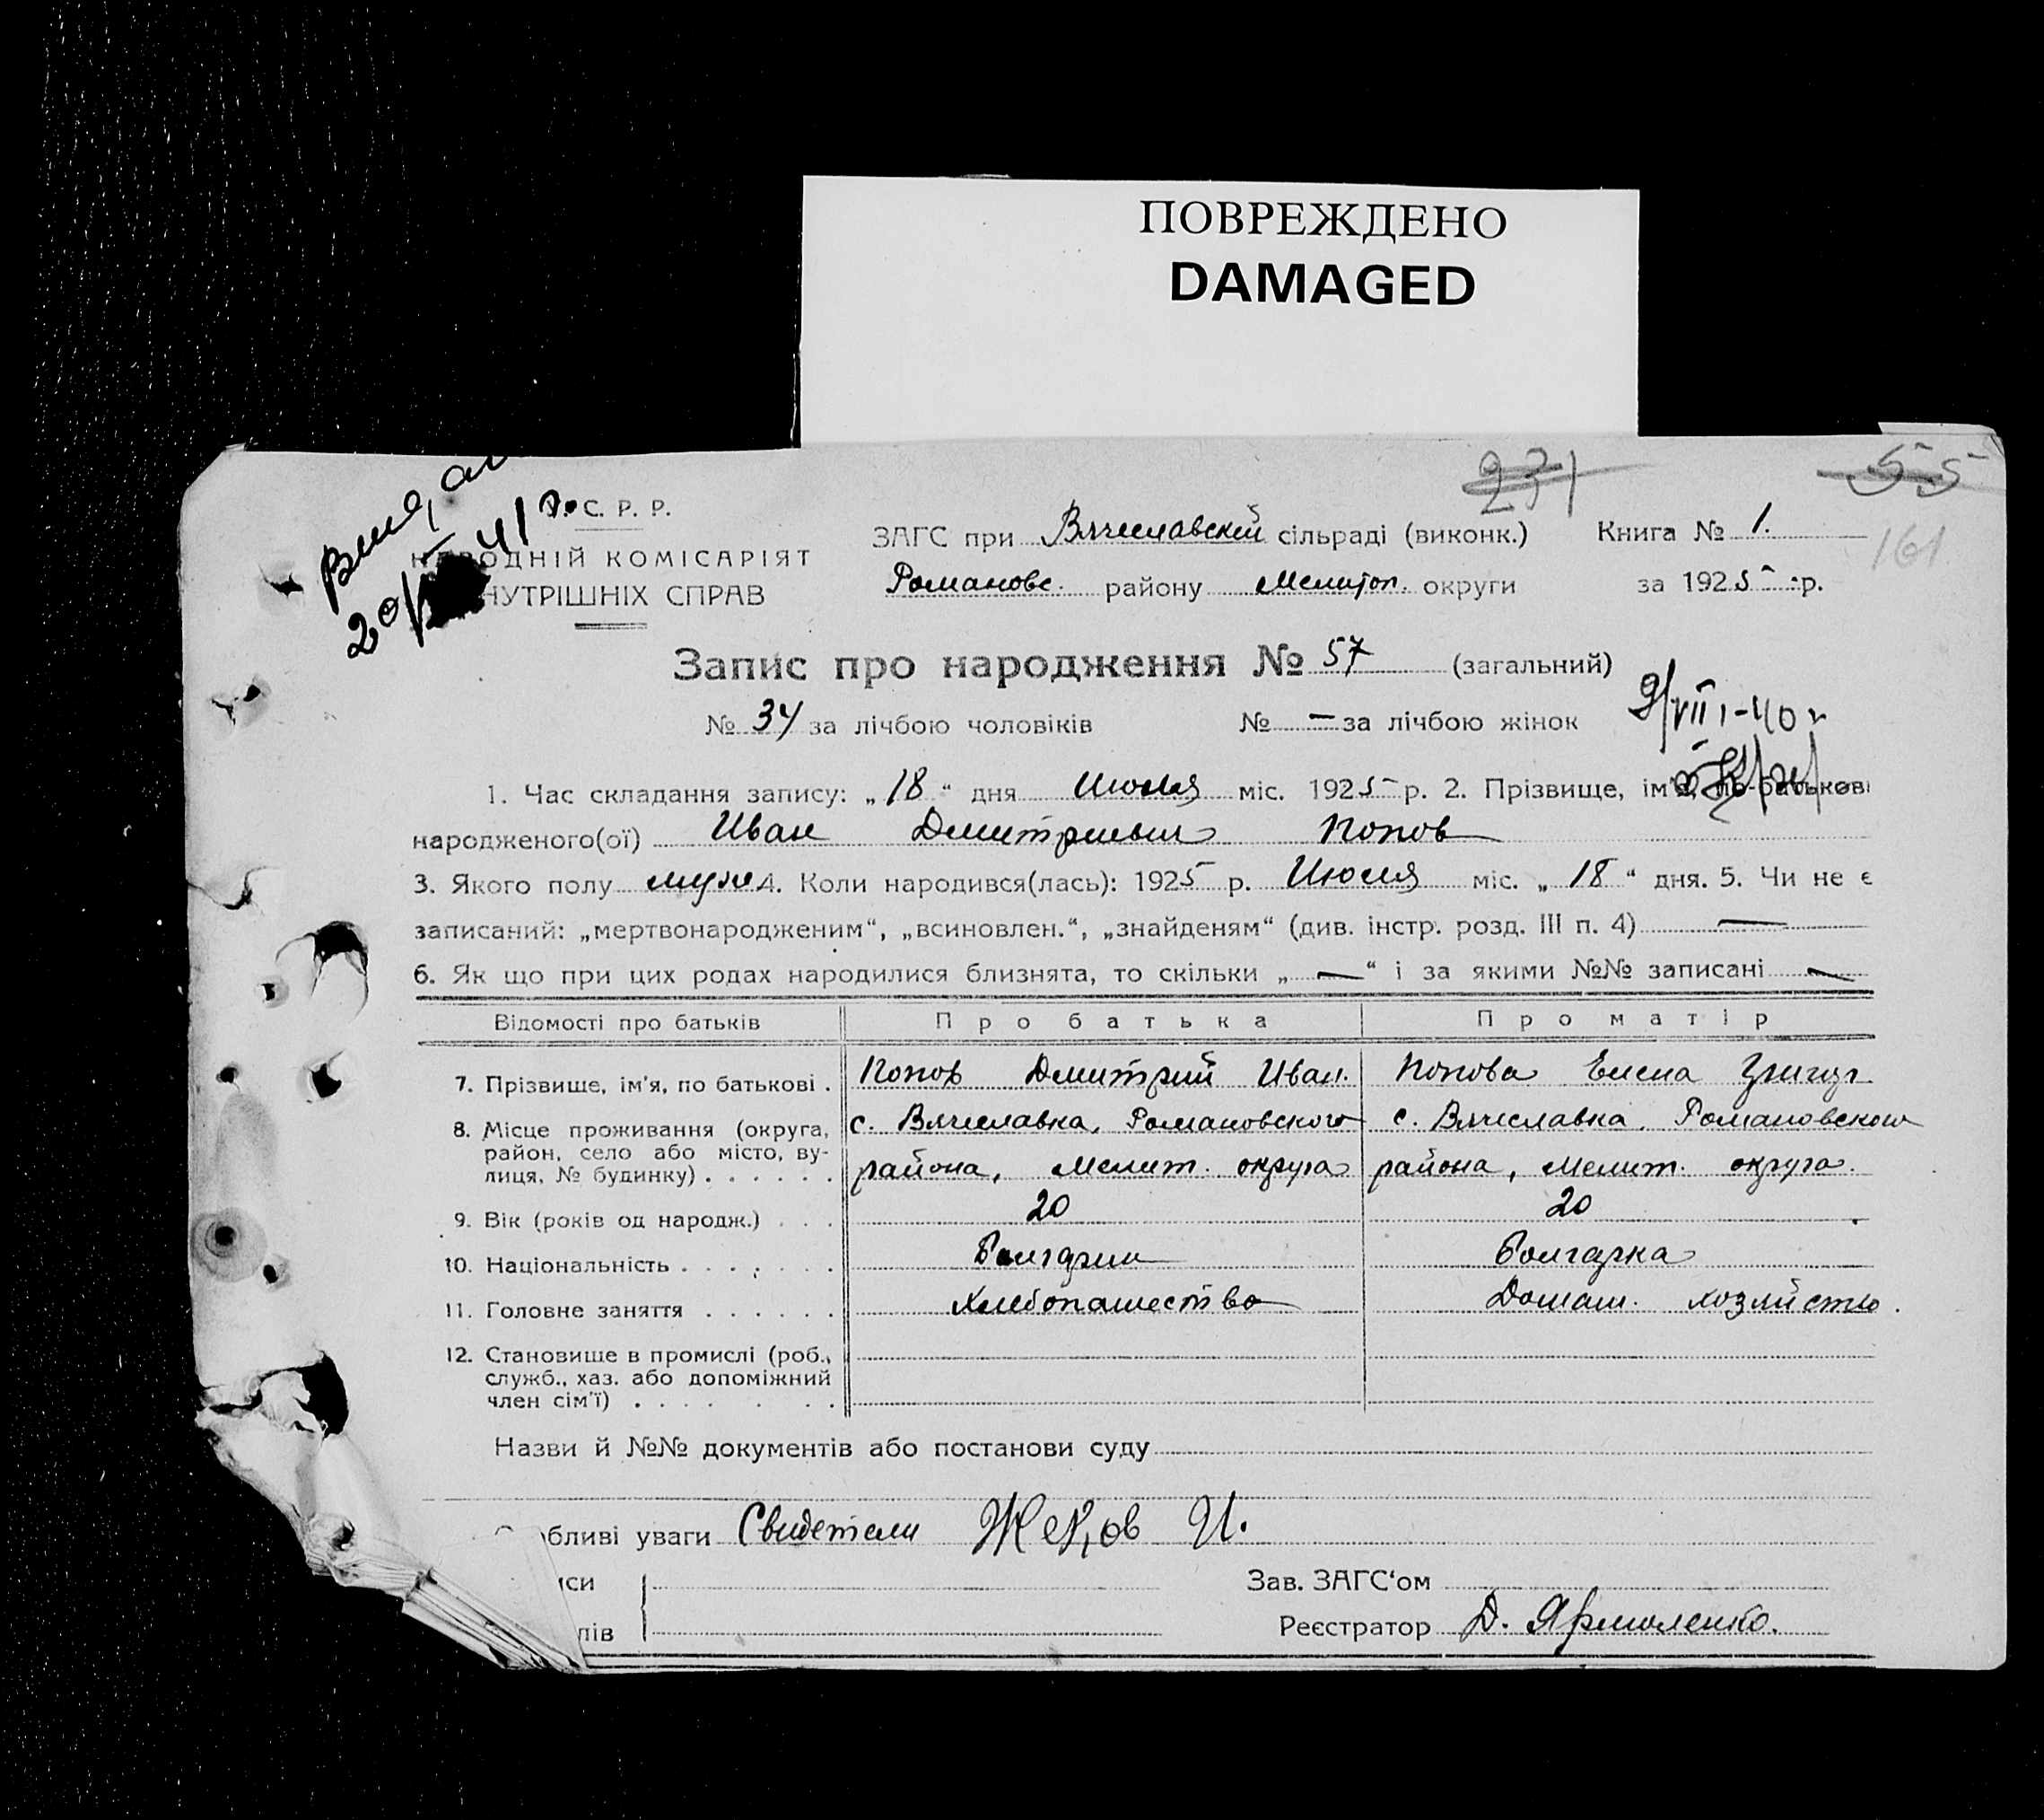 ПОВРЕЖДЕНО
DAMAGED
231
55
161
20/ 41
С. Р. Р.
НАРОДНІЙ КОМІСАРІЯТ
НУТРІШНІХ СПРАВ
ЗАГС при Вячеславской сільраді (виконк.) Книга № 1.
Романовс. району Мелитоп. округи за 1925 р.
Запис про народження № 57 (загальний)
№ 34 за лічбою чоловіків № — за лічбою жінок
9/VIII-40 г
1. Час складання запису: „18“ дня Июля міс. 1925 р. 2. Прізвище, ім'я, по-батькові
народженого(ої) Иван Дмитриевич Попов
3. Якого полу муж 4. Коли народився(лась): 1925 р. Июля міс. „18“ дня. 5. Чи не є
записаний: „мертвонародженим“, „всиновлен.“, „знайденям“ (див. інстр. розд. III п. 4) —
6. Як що при цих родах народилися близнята, то скільки „—“ і за якими №№ записані —
Відомості про батьків Про батька Про матір
7. Прізвище, ім'я, по батькові . Попов Дмитрий Иван. Попова Елена Григор.
8. Місце проживання (округа, район, село або місто, вулиця, № будинку) . . . . . . с. Вячеславка, Романовского района, Мелит. округа с. Вячеславка, Романовского района, Мелит. округа.
9. Вік (років од народж.) . . . 20 20
10. Національність . . . . . . . Болгарин Болгарка
11. Головне заняття . . . . . . Хлебопашество Домаш. хозяйство.
12. Становище в промислі (роб., служб., хаз. або допоміжний член сім'ї) . . . . . . .
Назви й №№ документів або постанови суду
бливі уваги Свидетели Жеков И.
иси Зав. ЗАГС‘ом
лів Реєстратор Д. Ярмоленко.